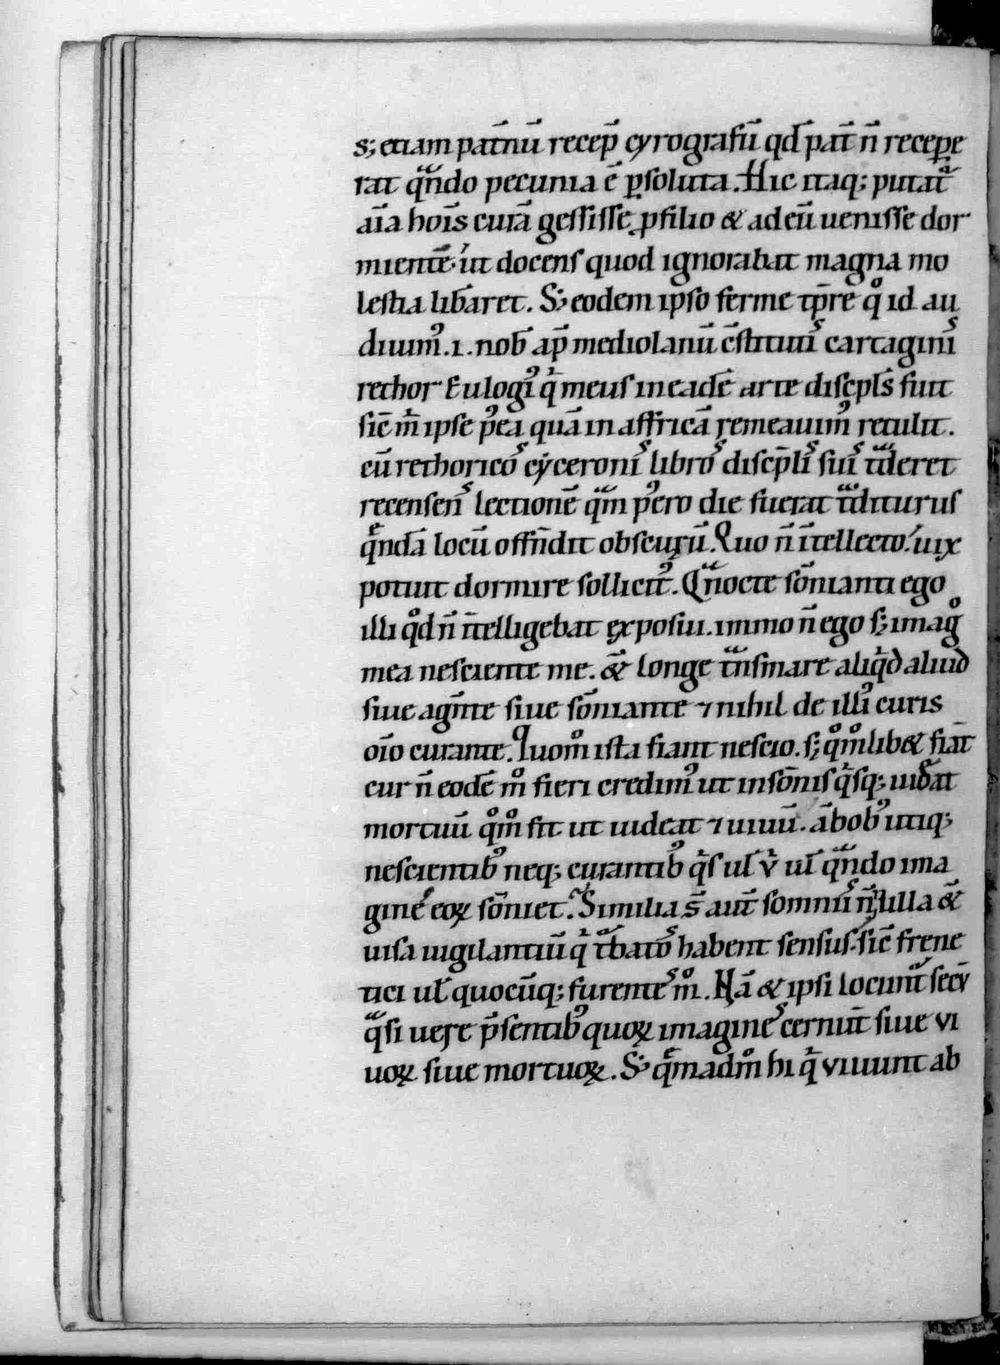 s; etiam pat̄nū recep̄ cyrografū qd̄ pat̄ n̄ recepe
rat qn̄do pecunia ē ꝑsoluta. Hic itaq; putat᷑
aīa hoīs curā gessisse ꝓ filio & ad eū uenisse dor
mientē. ut docens quod ignorabat magna mo
lestia libaret. S; eodem ipso ferme tp̄re qͦ id au
diuim᷒ .i. nob̄ ap̄ mediolanū c̄stitutiˢ cartaginiˢ
rethor Eulogi᷒ qͥ meus in eadē arte discipl̄s fuit
sic̄ m̄ ipse p᷒ea quā in affricā remeauim᷒ retulit.
cū rethoricoˢ cyceroniˢ libroˢ discip̄liˢ suiˢ tͣderet
recensenˢ lectionē qͣm p᷒ero die fuerat tͣditurus
qͤndā locū offn̄dit obscurū. Quo n̄ ītellecto. uix
potuit dormire sollicit᷒. Qͣ nocte sōnianti ego
illi qͦd n̄ īntelligebat exposui. immo n̄ ego s; imagͦ
mea nesciente me. &̄ longe tͣnsmare aliqͥd aliud
siue agn̄te siue sōniante ⁊ nihil de illi᷒ curis
oīo curante. Quomͦ ista fiant nescio. s; qͦmͦlib& fiāt
cur n̄ eodē mͦ fieri credim᷒ ut in sōnis qͥsq; uideat
mortuū qͦmͦ fit ut uideat ⁊ uiuū. ābob᷒ utiq;
nescientib᷒ neq; curantib᷒ qͥs ul̄ vͥ ul̄ qn̄do ima
gineˢ eoꝝ sōniet. Similia s̄ aut̄ somniiˢ n̄nulla &̄
uisa uigilantiū qͥ tͬbatoˢ habent sensus. sic̄ frene
tici ul̄ quocūq; furenteˢ mͦ. Nā & ipsi locunt᷑ secū
qͣsi uere p̄sentib᷒ quoꝝ imagineˢ cernunt̄ siue vi
uoꝝ siue mortuoꝝ. S; qͤmadmͦ hi qͥ viuunt ab